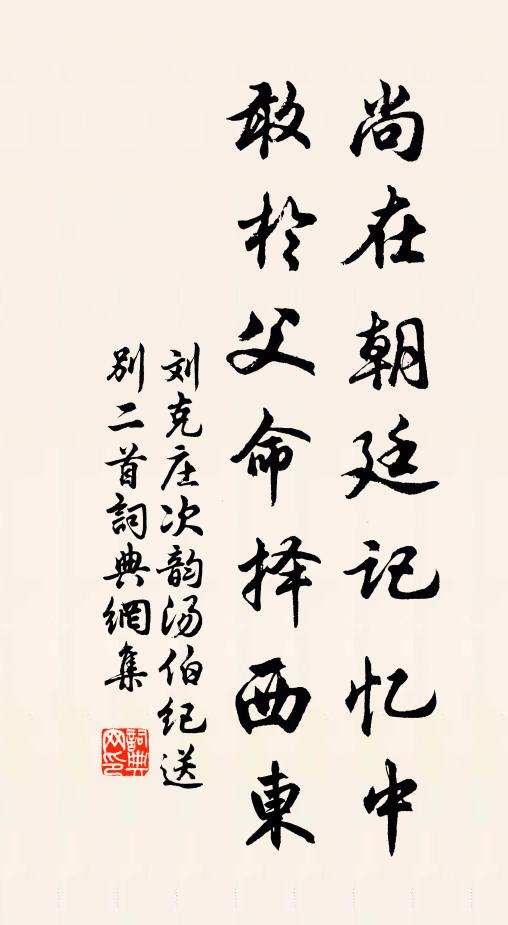 尚在朝廷记忆中
敢於父命择西東
刘克庄次韵汤伯纪送
别二首詞典網集
詞典
网印